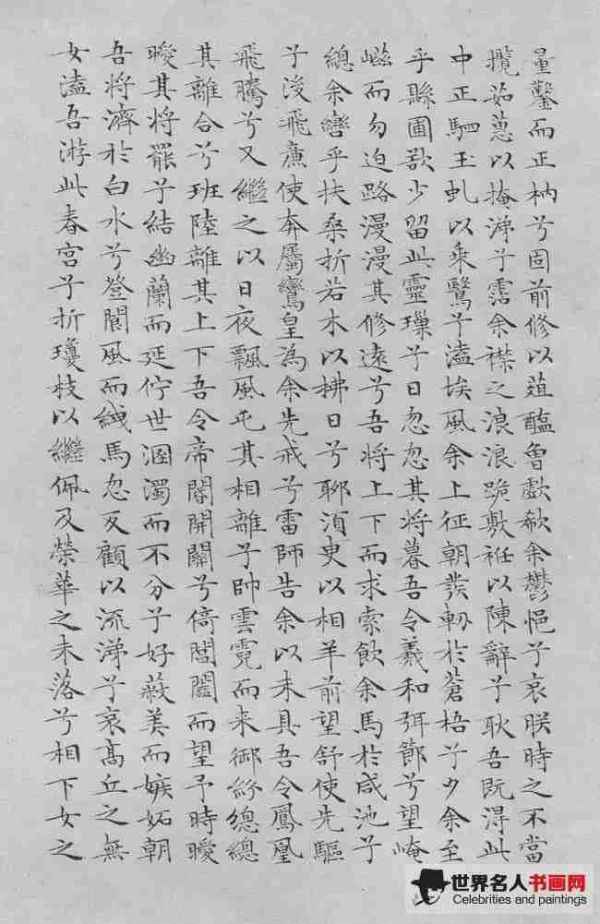 量鑿而正枘兮固前修以菹醢曾歔欷余鬱悒兮哀朕時之不當
攬茹蕙以掩涕兮霑余襟之浪浪跪敷衽以陳辭兮耿吾既得此
中正駟玉虬以乘鷖兮溘埃風余上征朝發軔於蒼梧兮夕余至
乎縣圃欲少留此靈瑣兮日忽忽其將暮吾令羲和弭節兮望崦
嵫而勿迫路漫漫其修遠兮吾將上下而求索飲余馬於咸池兮
總余轡乎扶桑折若木以拂日兮聊須臾以相羊前望舒使先驅
兮後飛廉使奔屬鸞皇為余先戒兮雷師告余以未具吾令鳳凰
飛騰兮又繼之以日夜飄風屯其相離兮帥雲霓而來御紛總總
其離合兮班陸離其上下吾令帝閽開關兮倚閶闔而望予時曖
曖其將罷兮結幽蘭而延佇世溷濁而不分兮好蔽美而嫉妬朝
吾將濟於白水兮登閬風而緤馬忽反顧以流涕兮哀高丘之無
女溘吾游此春宮兮折瓊枝以繼佩及榮華之未落兮相下女之
世界名人书画网
Celebrities and paintings